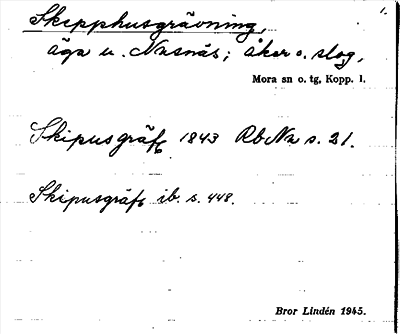 Skipphusgrävning,
1.
äga u. Nusnäs; åker o. slog,
Mora sn o. tg, Kopp. l.
Skipusgräfs 1843 Rb Nu s. 21.
Skipusgräfs ib. s. 448.
Bror Lindén 1945.